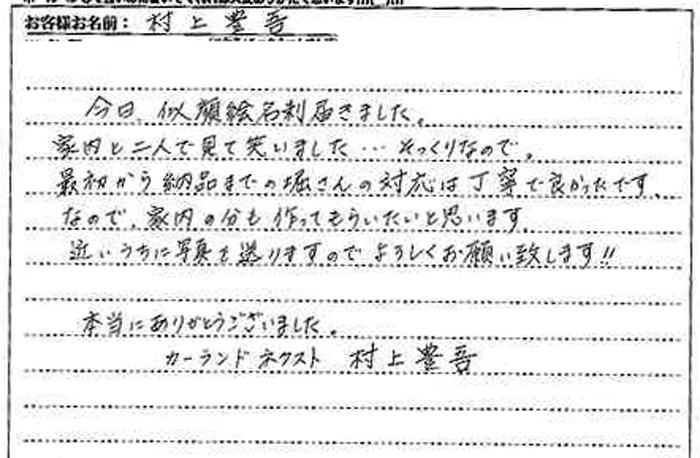 お客様お名前： 村上豊吾
今日、似顔絵名刺届きました。
家内と二人で見て笑いました…そっくりなので。
最初から納品までの堀さんの対応は丁寧で良かったです。
なので、家内の分も作ってもらいたいと思います。
近いうちに写真を送りますのでよろしくお願い致します!!
本当にありがとうございました。
カーランドネクスト 村上豊吾